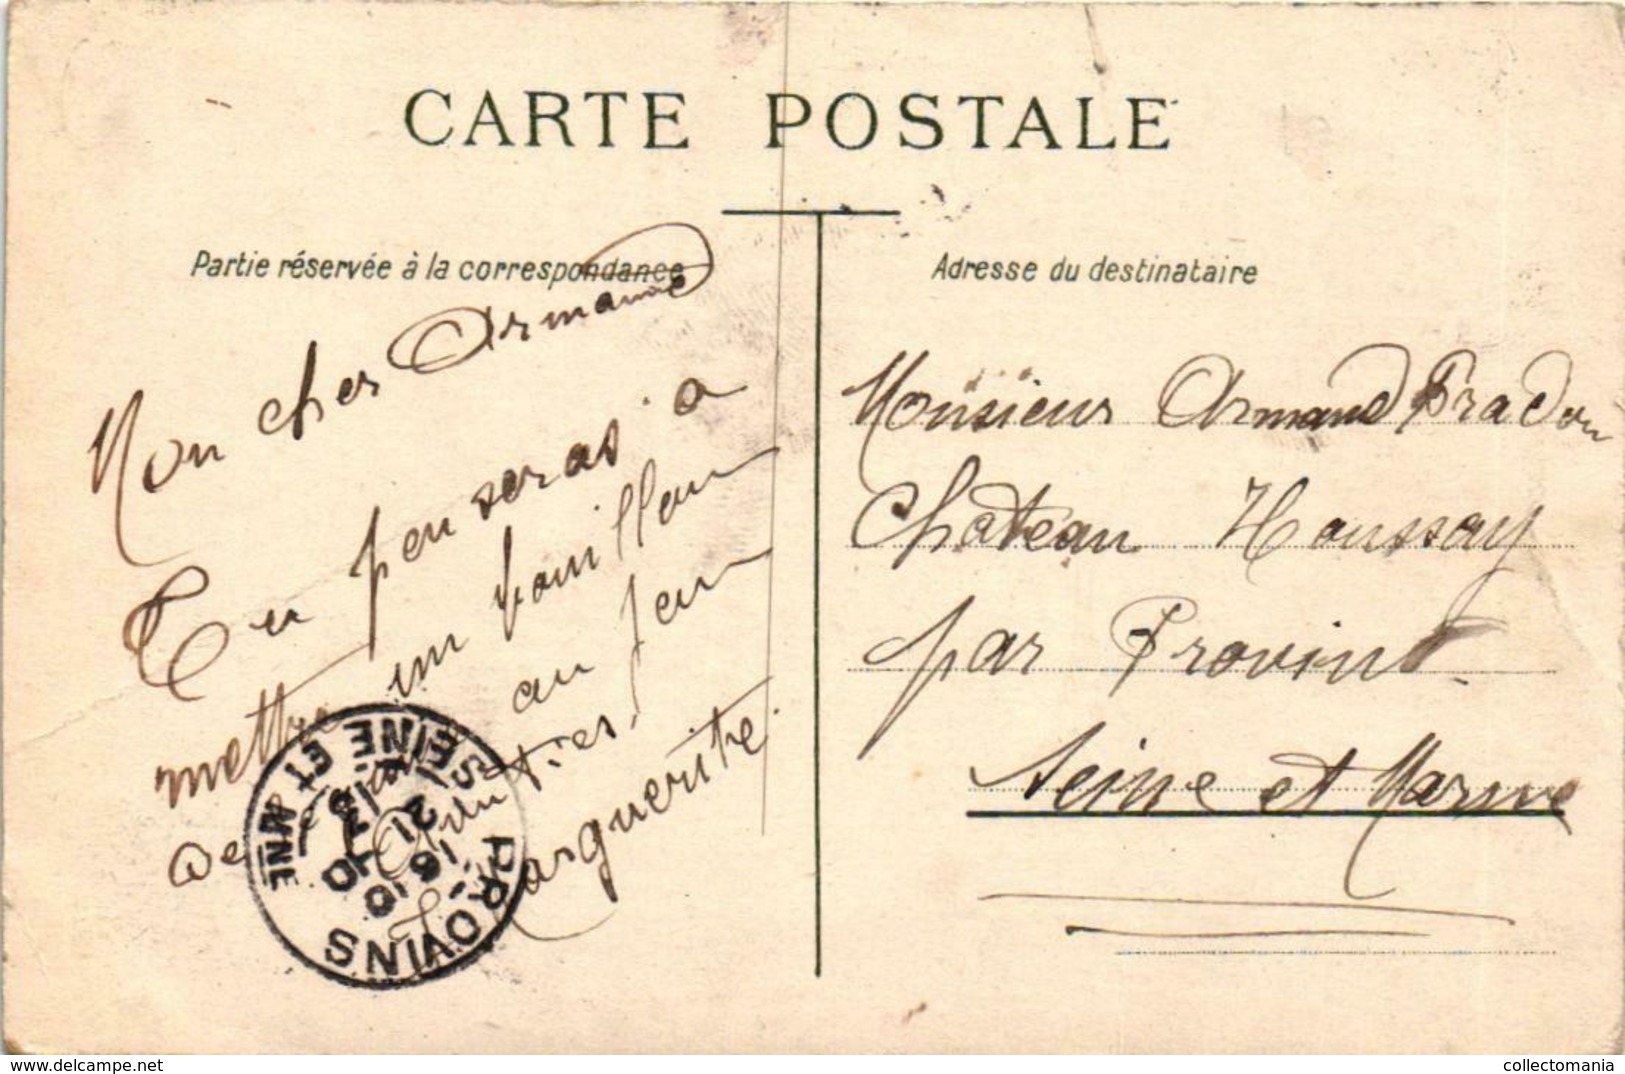 CARTE POSTALE
Partie réservée à la correspondance
Mon cher Armand
Tu penseras à
mettre un bouillon
au feu
de
Marguerite.
Adresse du destinataire
Monsieur Armand Pradou
Chateau Houssay
par Provins
Seine et Marne
PROVINS
SEINE ET MNE
collectomania